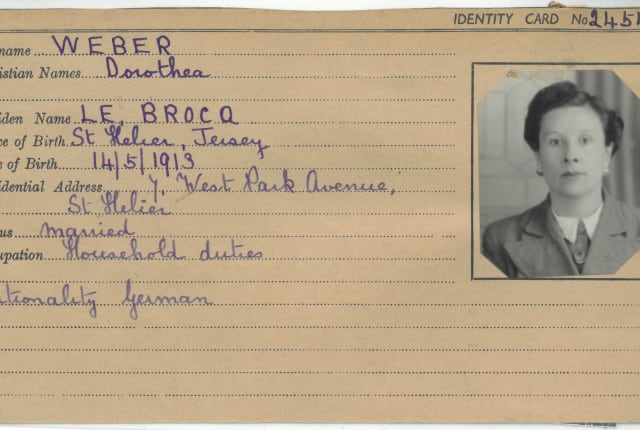 IDENTITY CARD No 2454
name WEBER
istian Names Dorothea
iden Name LE BROCQ
ce of Birth St Helier, Jersey
e of Birth 14/5/1913
idential Address 7, West Park Avenue,
St Helier
us married
upation Household duties
ationality German